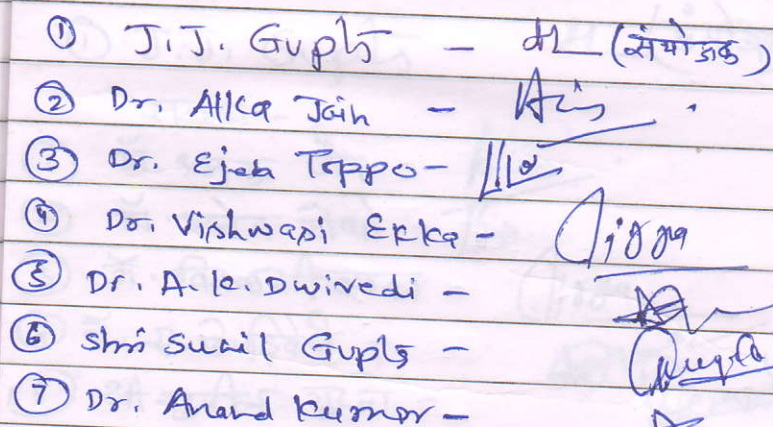 ① J.J. Gupta - (संयोजक)
② Dr. Alka Jain -
③ Dr. Ejeba Toppo -
④ Dr. Vishwasi Ekka -
⑤ Dr. A.K. Dwivedi -
⑥ Shri Sunil Gupta - Gupta
⑦ Dr. Anand Kumar -